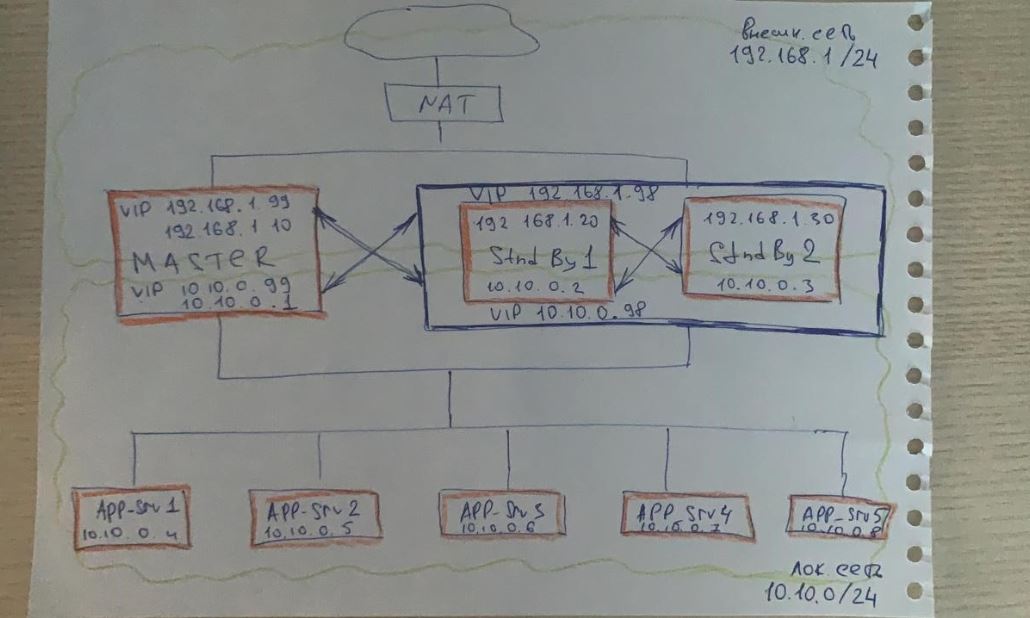 Внешн. сеть
192.168.1/24
NAT
VIP 192.168.1.99
192.168.1 10
MASTER
VIP 10.10.0.99
10.10.0.1
VIP 192.168.1.98
192 168.1.20
Stnd By 1
10.10.0.2
VIP 10.10.0.98
192.168.1.30
Stnd By 2
10.10.0.3
APP-Srv 1
10.10.0.4
APP-Srv 2
10.10.0.5
APP-Srv 3
10.10.0.6
APP Srv 4
10.10.0.7
APP_Srv 5
10.10.0.8
Лок. сеть
10.10.0/24